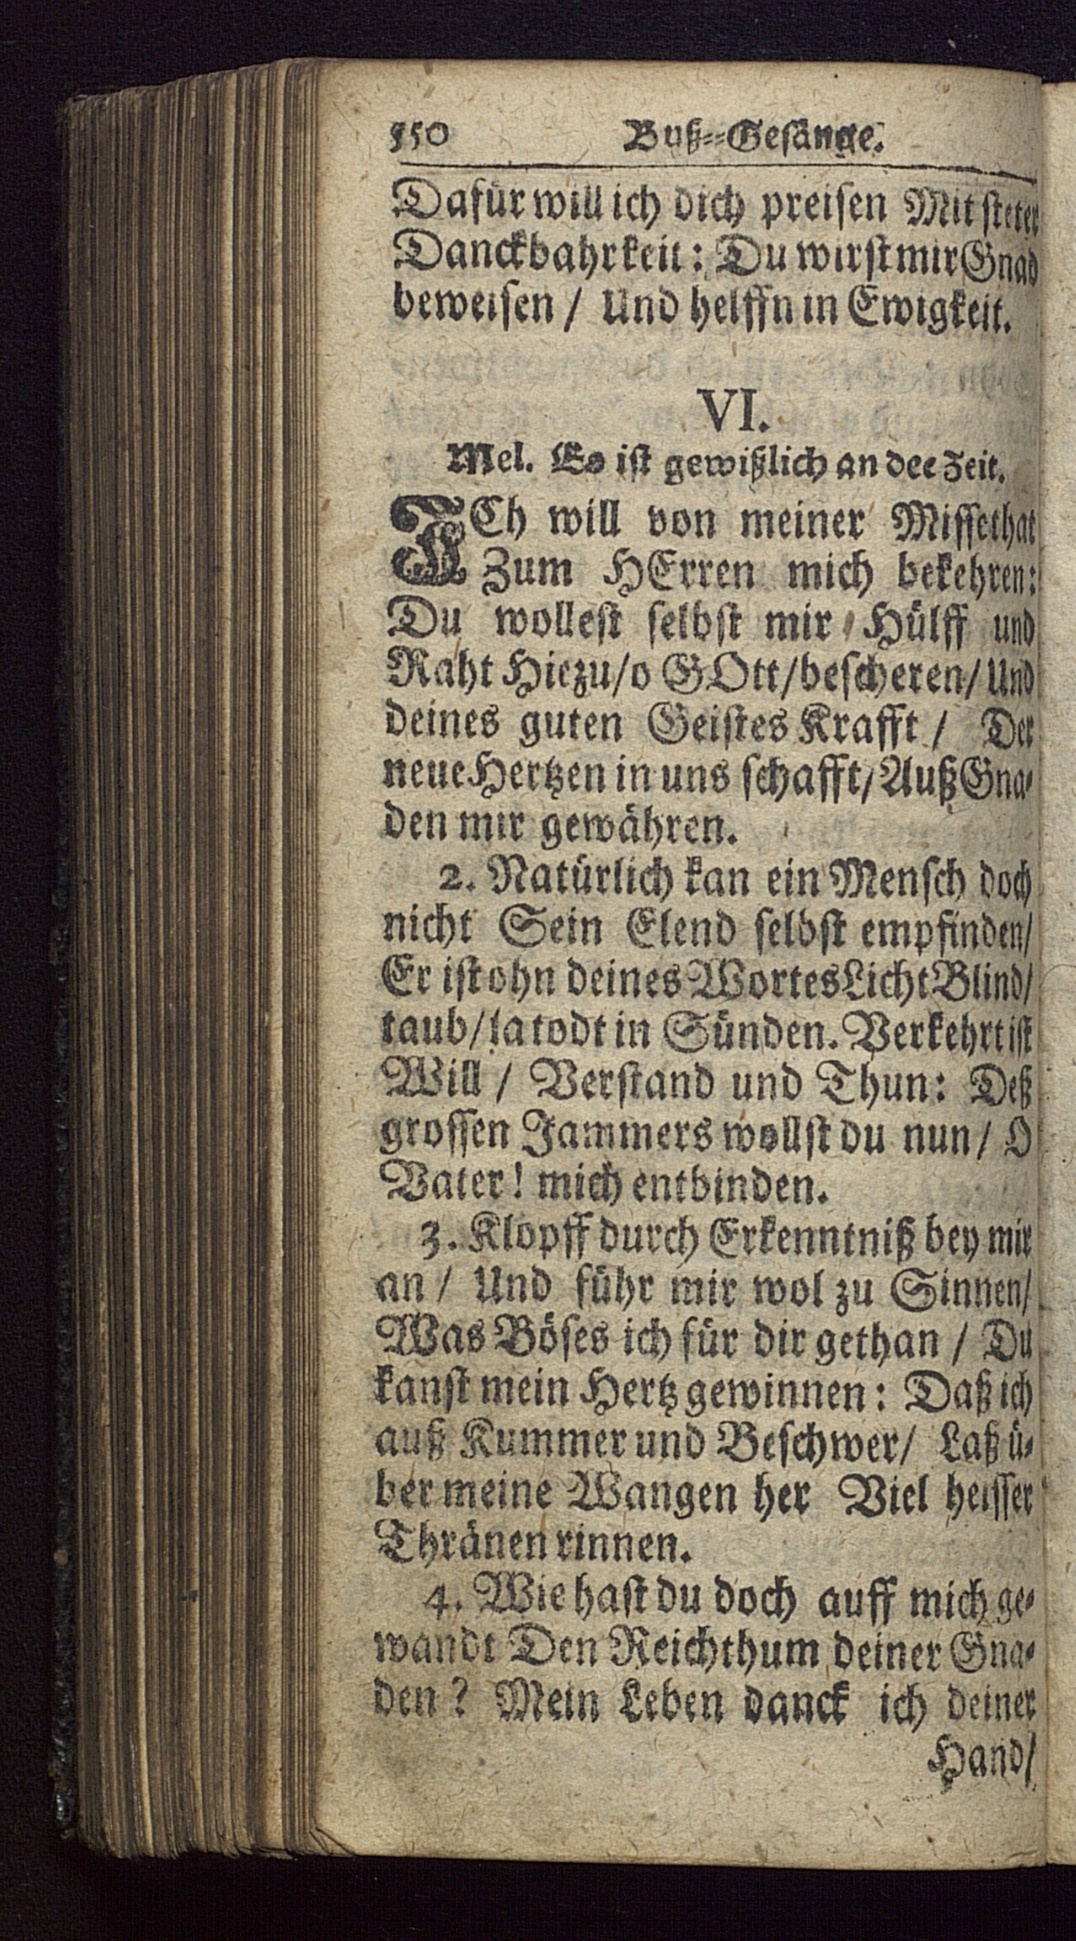 550 Buß-Gesänge.
Dafür will ich dich preisen Mit steter
Danckbahrkeit: Du wirst mir Gnad
beweisen / Und helffn in Ewigkeit.
VI.
Mel. Es ist gewißlich an der Zeit.
ICh will von meiner Missethat
Zum HErren mich bekehren:
Du wollest selbst mir Hülff und
Raht Hiezu/o GOtt/bescheren/ Und
deines guten Geistes Krafft / Der
neue Hertzen in uns schafft/Auß Gna-
den mir gewähren.
2. Natürlich kan ein Mensch doch
nicht Sein Elend selbst empfinden/
Er ist ohn deines Wortes Licht Blind/
taub/ja todt in Sünden. Verkehrt ist
Will / Verstand und Thun: Deß
grossen Jammers wollst du nun/ O
Vater! mich entbinden.
3. Klopff durch Erkenntniß bey mir
an / Und führ mir wol zu Sinnen/
Was Böses ich für dir gethan / Du
kanst mein Hertz gewinnen: Daß ich
auß Kummer und Beschwer/ Laß ü-
ber meine Wangen her Viel heisser
Thränen rinnen.
4. Wie hast du doch auff mich ge-
wandt Den Reichthum deiner Gna-
den? Mein Leben danck ich deiner
Hand/